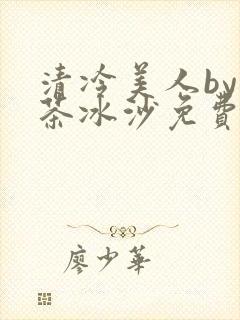 清冷美人by
茶冰沙免费
廖少華